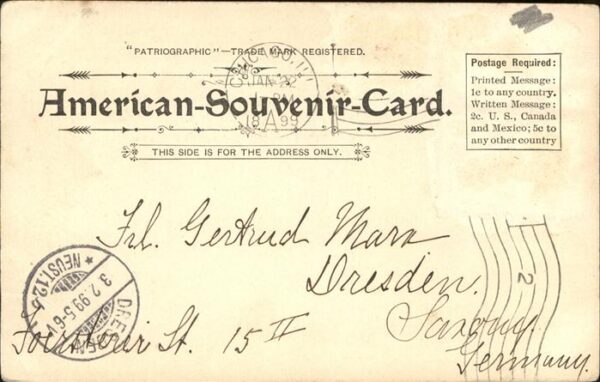 "PATRIOGRAPHIC"—TRADE MARK REGISTERED.
CHICAGO, ILL
JAN 22
PM
1899
A
American-Souvenir-Card.
THIS SIDE IS FOR THE ADDRESS ONLY.
Postage Required:
Printed Message:
1c to any country.
Written Message:
2c. U. S., Canada
and Mexico; 5c to
any other country
2
Frl. Gertrud Marx
Dresden.
Saxony
Germany.
St. 15 II
DRESDEN
* NEUST. 12.b
3.2.99.5-6V